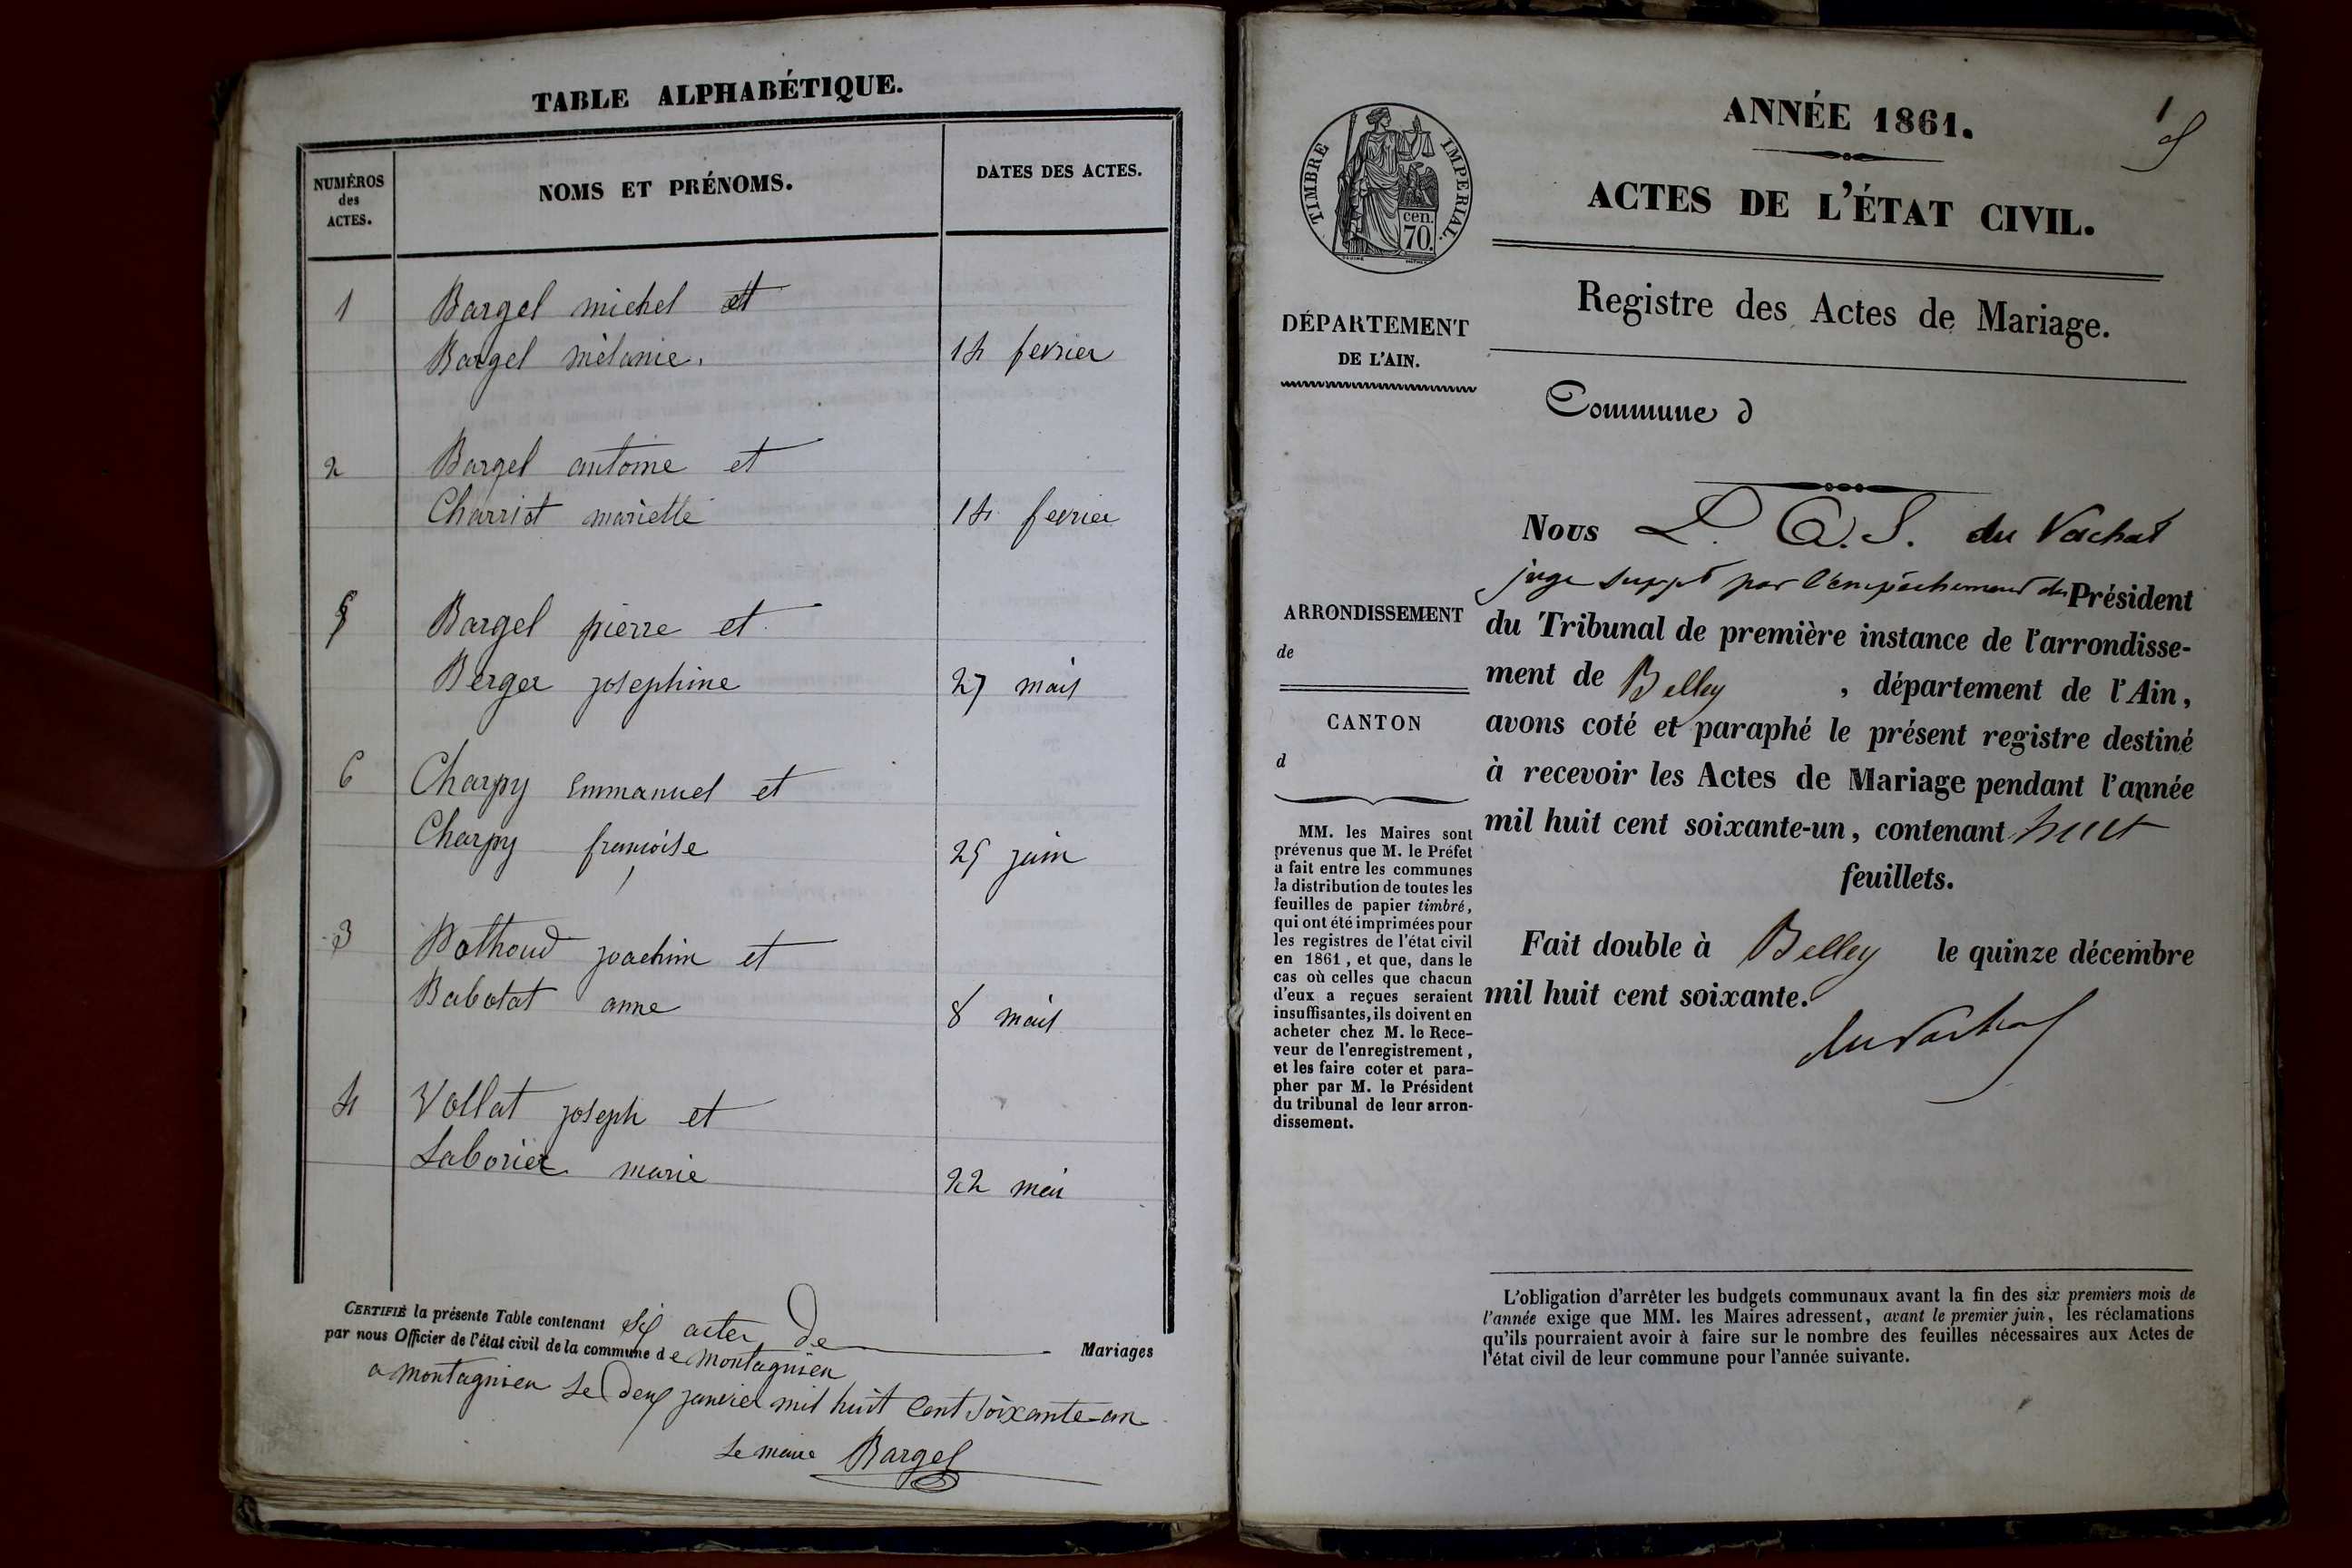 TABLE ALPHABÉTIQUE.
NUMÉROS
des
ACTES.
NOMS ET PRÉNOMS.
DATES DES ACTES.
1 Bargel michel et
Bargel mélanie. 14 fevrier
2 Bargel antoine et
Charriot mariette 14 fevrier
5 Bargel pierre et
Berger josephine 27 mai
6 Charpy Emmanuel et
Charpy françoise 25 juin
3 joachim et
Babolat anne 8 mai
4 Vollat joseph et
Laborier marie 22 mai
CERTIFIÉ la présente Table contenant six actes de Mariages
par nous Officier de l'état civil de la commune de montagnieu
a montagnieu le deux janvier mil huit cent soixante-un
Le maire Bargel
TIMBRE IMPERIAL.
cen.
70.
DÉPARTEMENT
DE L'AIN.
ARRONDISSEMENT
de
CANTON
d
MM. les Maires sont
prévenus que M. le Préfet
a fait entre les communes
la distribution de toutes les
feuilles de papier timbré,
qui ont été imprimées pour
les registres de l'état civil
en 1861, et que, dans le
cas où celles que chacun
d'eux a reçues seraient
insuffisantes, ils doivent en
acheter chez M. le Rece-
veur de l'enregistrement,
et les faire coter et para-
pher par M. le Président
du tribunal de leur arron-
dissement.
1
ANNÉE 1861.
ACTES DE L'ÉTAT CIVIL.
Registre des Actes de Mariage.
Commune d
Nous L. A. S. du Vachat
juge suppt par l'empêchement du Président
du Tribunal de première instance de l'arrondisse-
ment de Belley , département de l'Ain,
avons coté et paraphé le présent registre destiné
à recevoir les Actes de Mariage pendant l'année
mil huit cent soixante-un, contenant huit
feuillets.
Fait double à Belley le quinze décembre
mil huit cent soixante.
du Vachat
L'obligation d'arrêter les budgets communaux avant la fin des six premiers mois de
l'année exige que MM. les Maires adressent, avant le premier juin, les réclamations
qu'ils pourraient avoir à faire sur le nombre des feuilles nécessaires aux Actes de
l'état civil de leur commune pour l'année suivante.